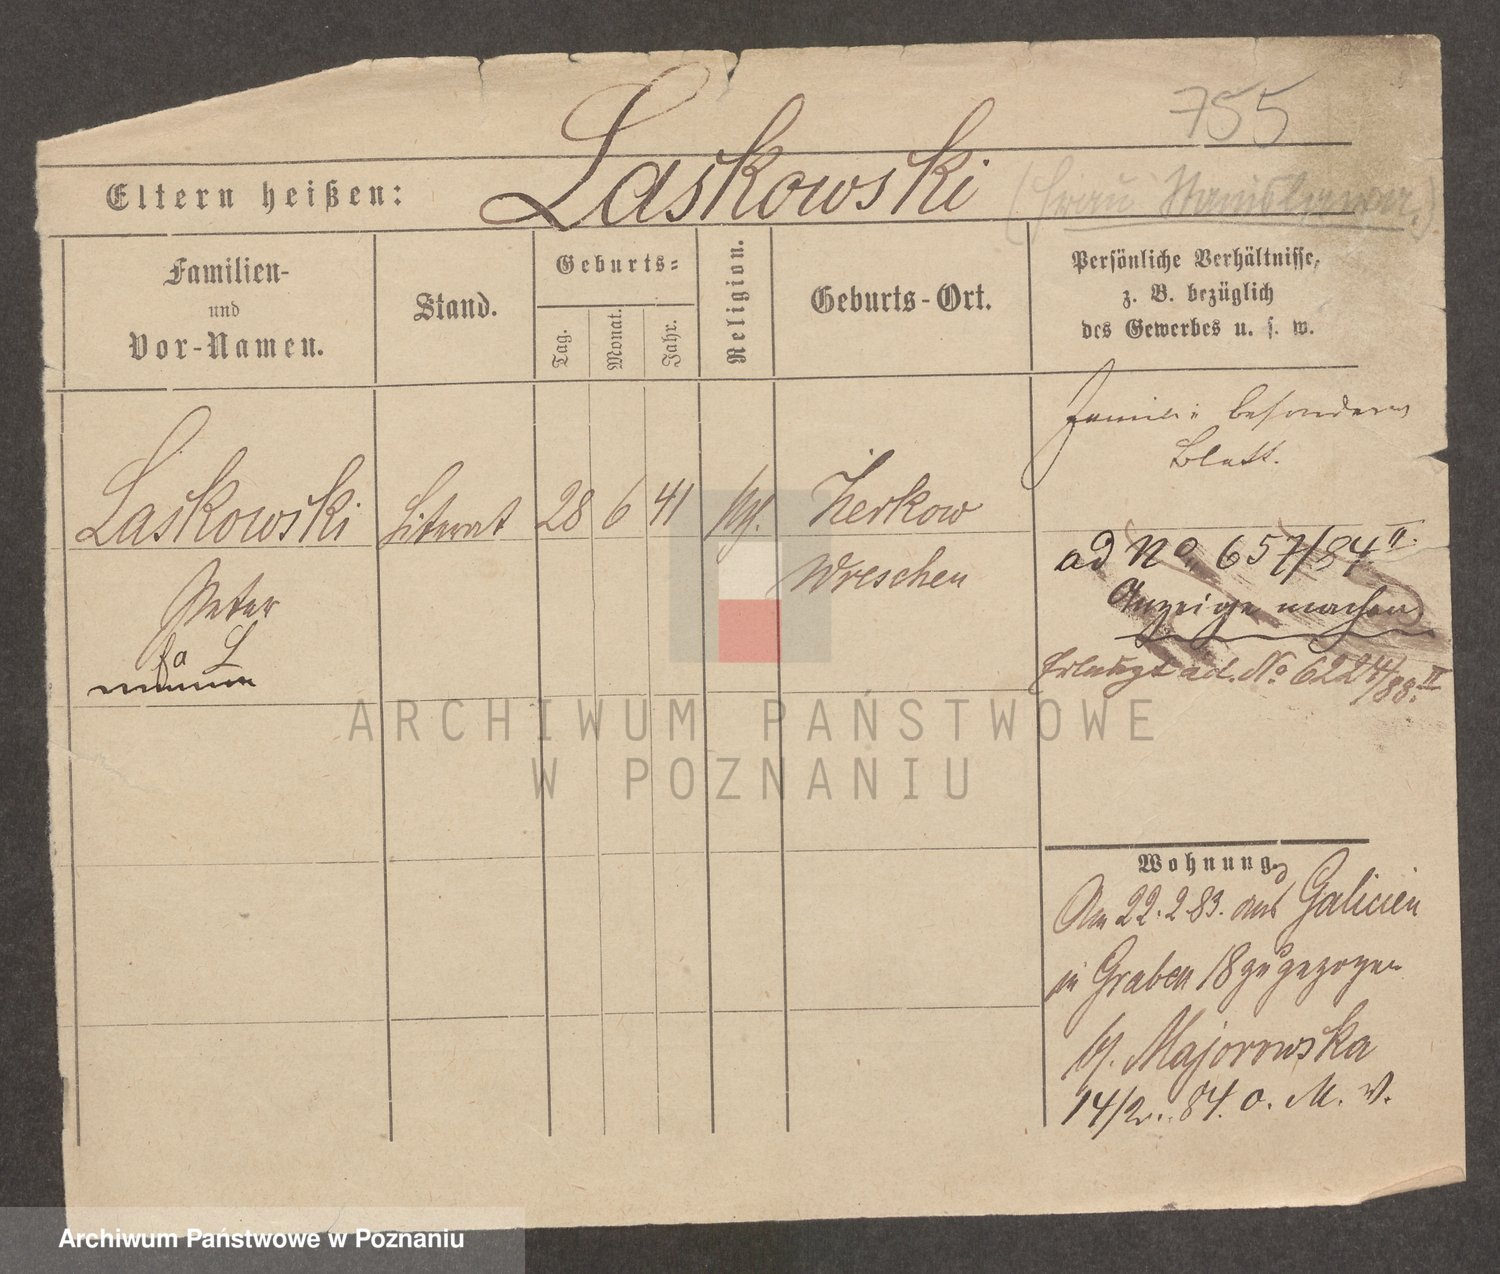 755
Eltern heißen: Laskowski (Frau Stanislawa.)
Familien-
und
Vor-Namen.
Stand.
Geburts-
Tag.
Monat.
Jahr.
Religion.
Geburts-Ort.
Persönliche Verhältnisse,
z. B. bezüglich
des Gewerbes u. s. w.
Familie besonderes
Blatt.
Laskowski Literat 28 6 41 Zerkow
Peter Wreschen
ad No. 657/84 II.
Anzeige machen
Erledigt ad. No 6224/88. II
Wohnung.
Am 22.2.83. aus Galicien
in Graben 18 zugezogen
b/. Majorowska
14/2. 84. o. M. V.
ARCHIWUM PAŃSTWOWE
W POZNANIU
Archiwum Państwowe w Poznaniu